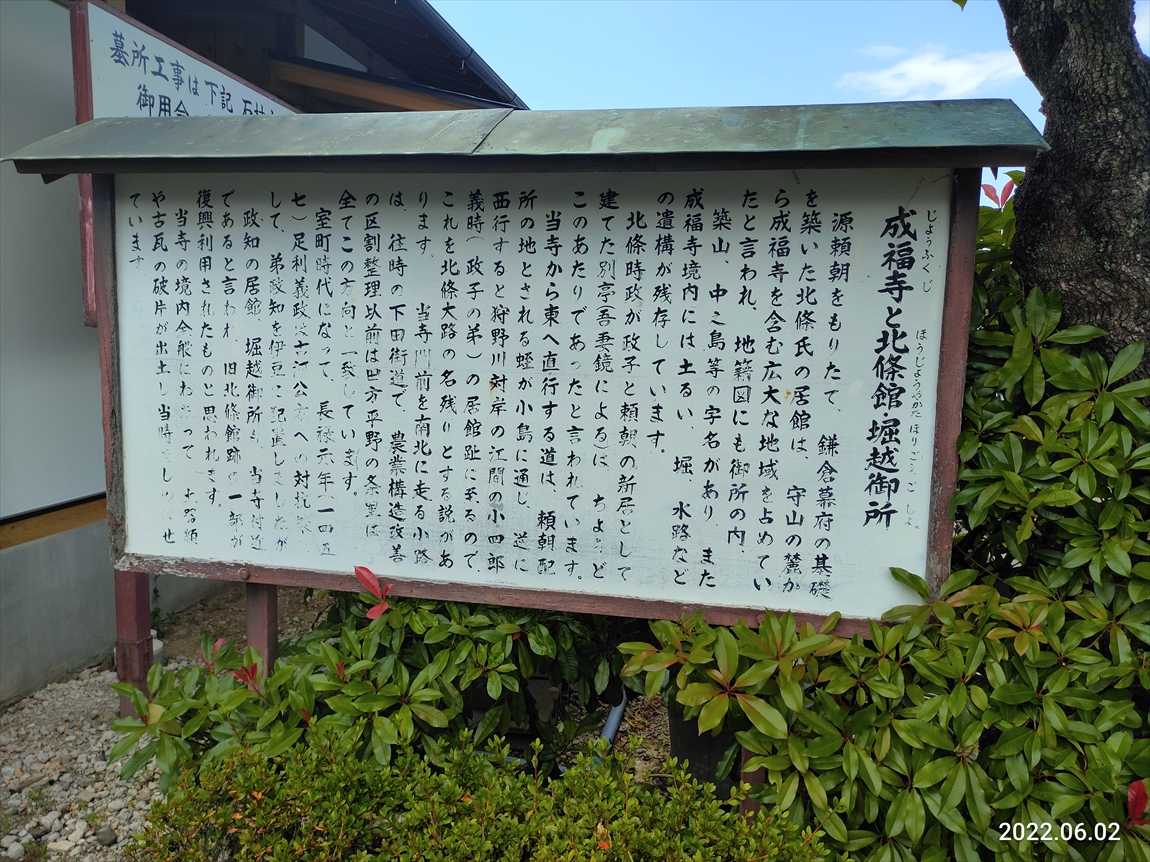 墓所工事は下記
御用命
じょうふくじ ほうじょうやかた ほりごごしょ
成福寺と北條館・堀越御所
源頼朝をもりたて、鎌倉幕府の基礎
を築いた北條氏の居館は、守山の麓か
ら成福寺を含む広大な地域を占めてい
たと言われ、地籍図にも御所の内、
築山、中之島等の字名があり、また
成福寺境内には土るい、堀、水路など
の遺構が残存しています。
北條時政が政子と頼朝の新居として
建てた別亭吾妻鏡によるは、ちょうど
このあたりであったと言われています。
当寺から東へ直行する道は、頼朝配
所の地とされる蛭が小島に通し、逆に
西行すると狩野川対岸の江間の小四郎
義時(政子の弟)の居館趾に至るので、
これを北條大路の名残りとする説があ
ります。当寺門前を南北に走る小路
は、往時の下田街道で、農業構造改善
の区割整理以前は田方平野の条里は
全てこの方向と一致しています。
室町時代になって、長禄元年(一四五
七)足利義政は古河公方への対抗
して、弟政知を伊豆に配置しましたが
政知の居館、堀越御所も、当寺付近
であると言われ、旧北條館跡の一部が
復興利用されたものと思われます。
当寺の境内全般にわたって
や古瓦の破片が出土し当時を
ています
2022.06.02